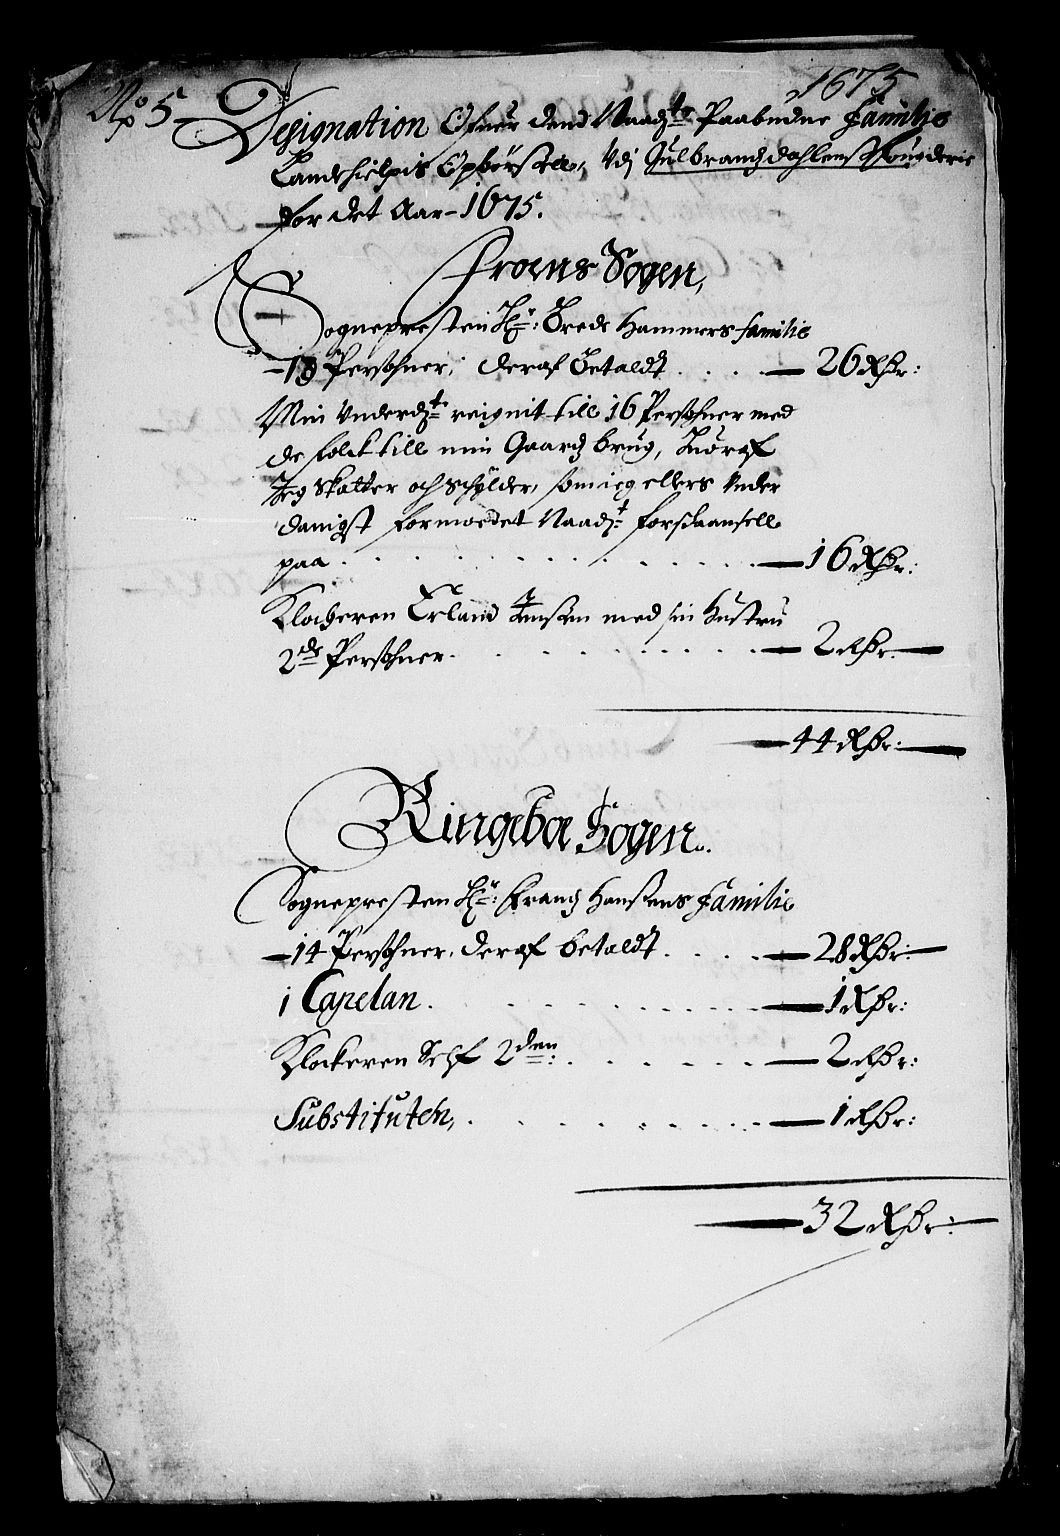 1675
No 5
Designation Ofuer dend Naadste Paabudne Familie
Landehielpis Opbørsell, Vdj Gulbrandzdahlens Fougderie
for det Aar 1675.
Froens Sogen,
Sognepresten Hr: Brede Hammers familie
18 Persohner, deraf betaldt . . . . — 26 Rdr:
Min Vnderd: reignit till 16 Persohner med
de folck till min Gaardz brug, huoraf
Jeg Skatter och Schylder, som ieg ellers Vnder
danigst formoedet Naadt: forskaansell
paa . . . . . . . . — 16 Rdr:
Klockeren Erland Jensen med sin Hustru
2de Persohner . . . . . . . — 2 Rdr.
— 44 Rdr:
Ringeboe Sogen.
Sognepresten Hr: Frandz Hansens Familie
14 Persohner, deraf betaldt . . . . — 28 Rdr:
1 Capelan . . . . . . . — 1 Rdr:
Klockeren Self 2den: . . . . . — 2 Rdr:
Substituten, . . . . . . . — 1 Rdr:
— 32 Rdr: